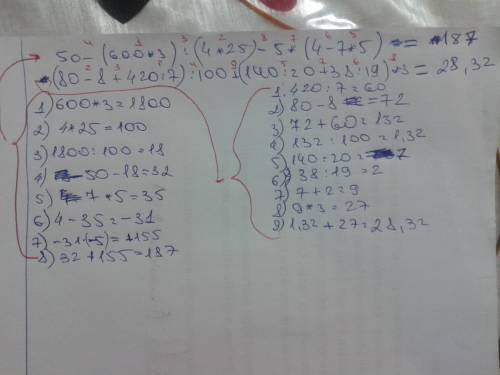 4 1 3 2 8 7 6 5
50-(600*3):(4*25)-5*(4-7*5) = 187
2 3 1 4 9 5 7 6 8
(80-8+420:7):100+(140:20+38:19)*3=28,32
1) 600*3=1800
2) 4*25=100
3) 1800:100=18
4) 50-18=32
5) 7*5=35
6) 4-35=-31
7) -31*(-5)=+155
8) 32+155=187
1. 420:7=60
2) 80-8=72
3) 72+60=132
4) 132:100=1,32
5) 140:20=7
6) 38:19=2
7) 7+2=9
8) 9*3=27
9) 1,32+27=28,32